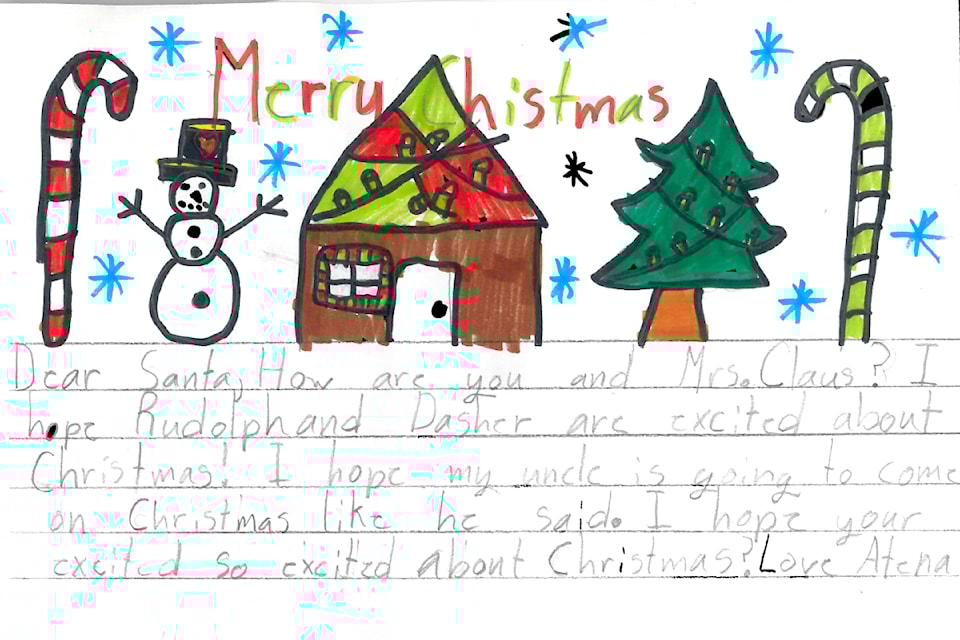 Merry Chistmas
Dear Santa, How are you and Mrs. Claus? I
hope Rudolph and Dasher are excited about
Christmas! I hope my uncle is going to come
on Christmas like he said. I hope your
excited so excited about Christmas? Love Atena